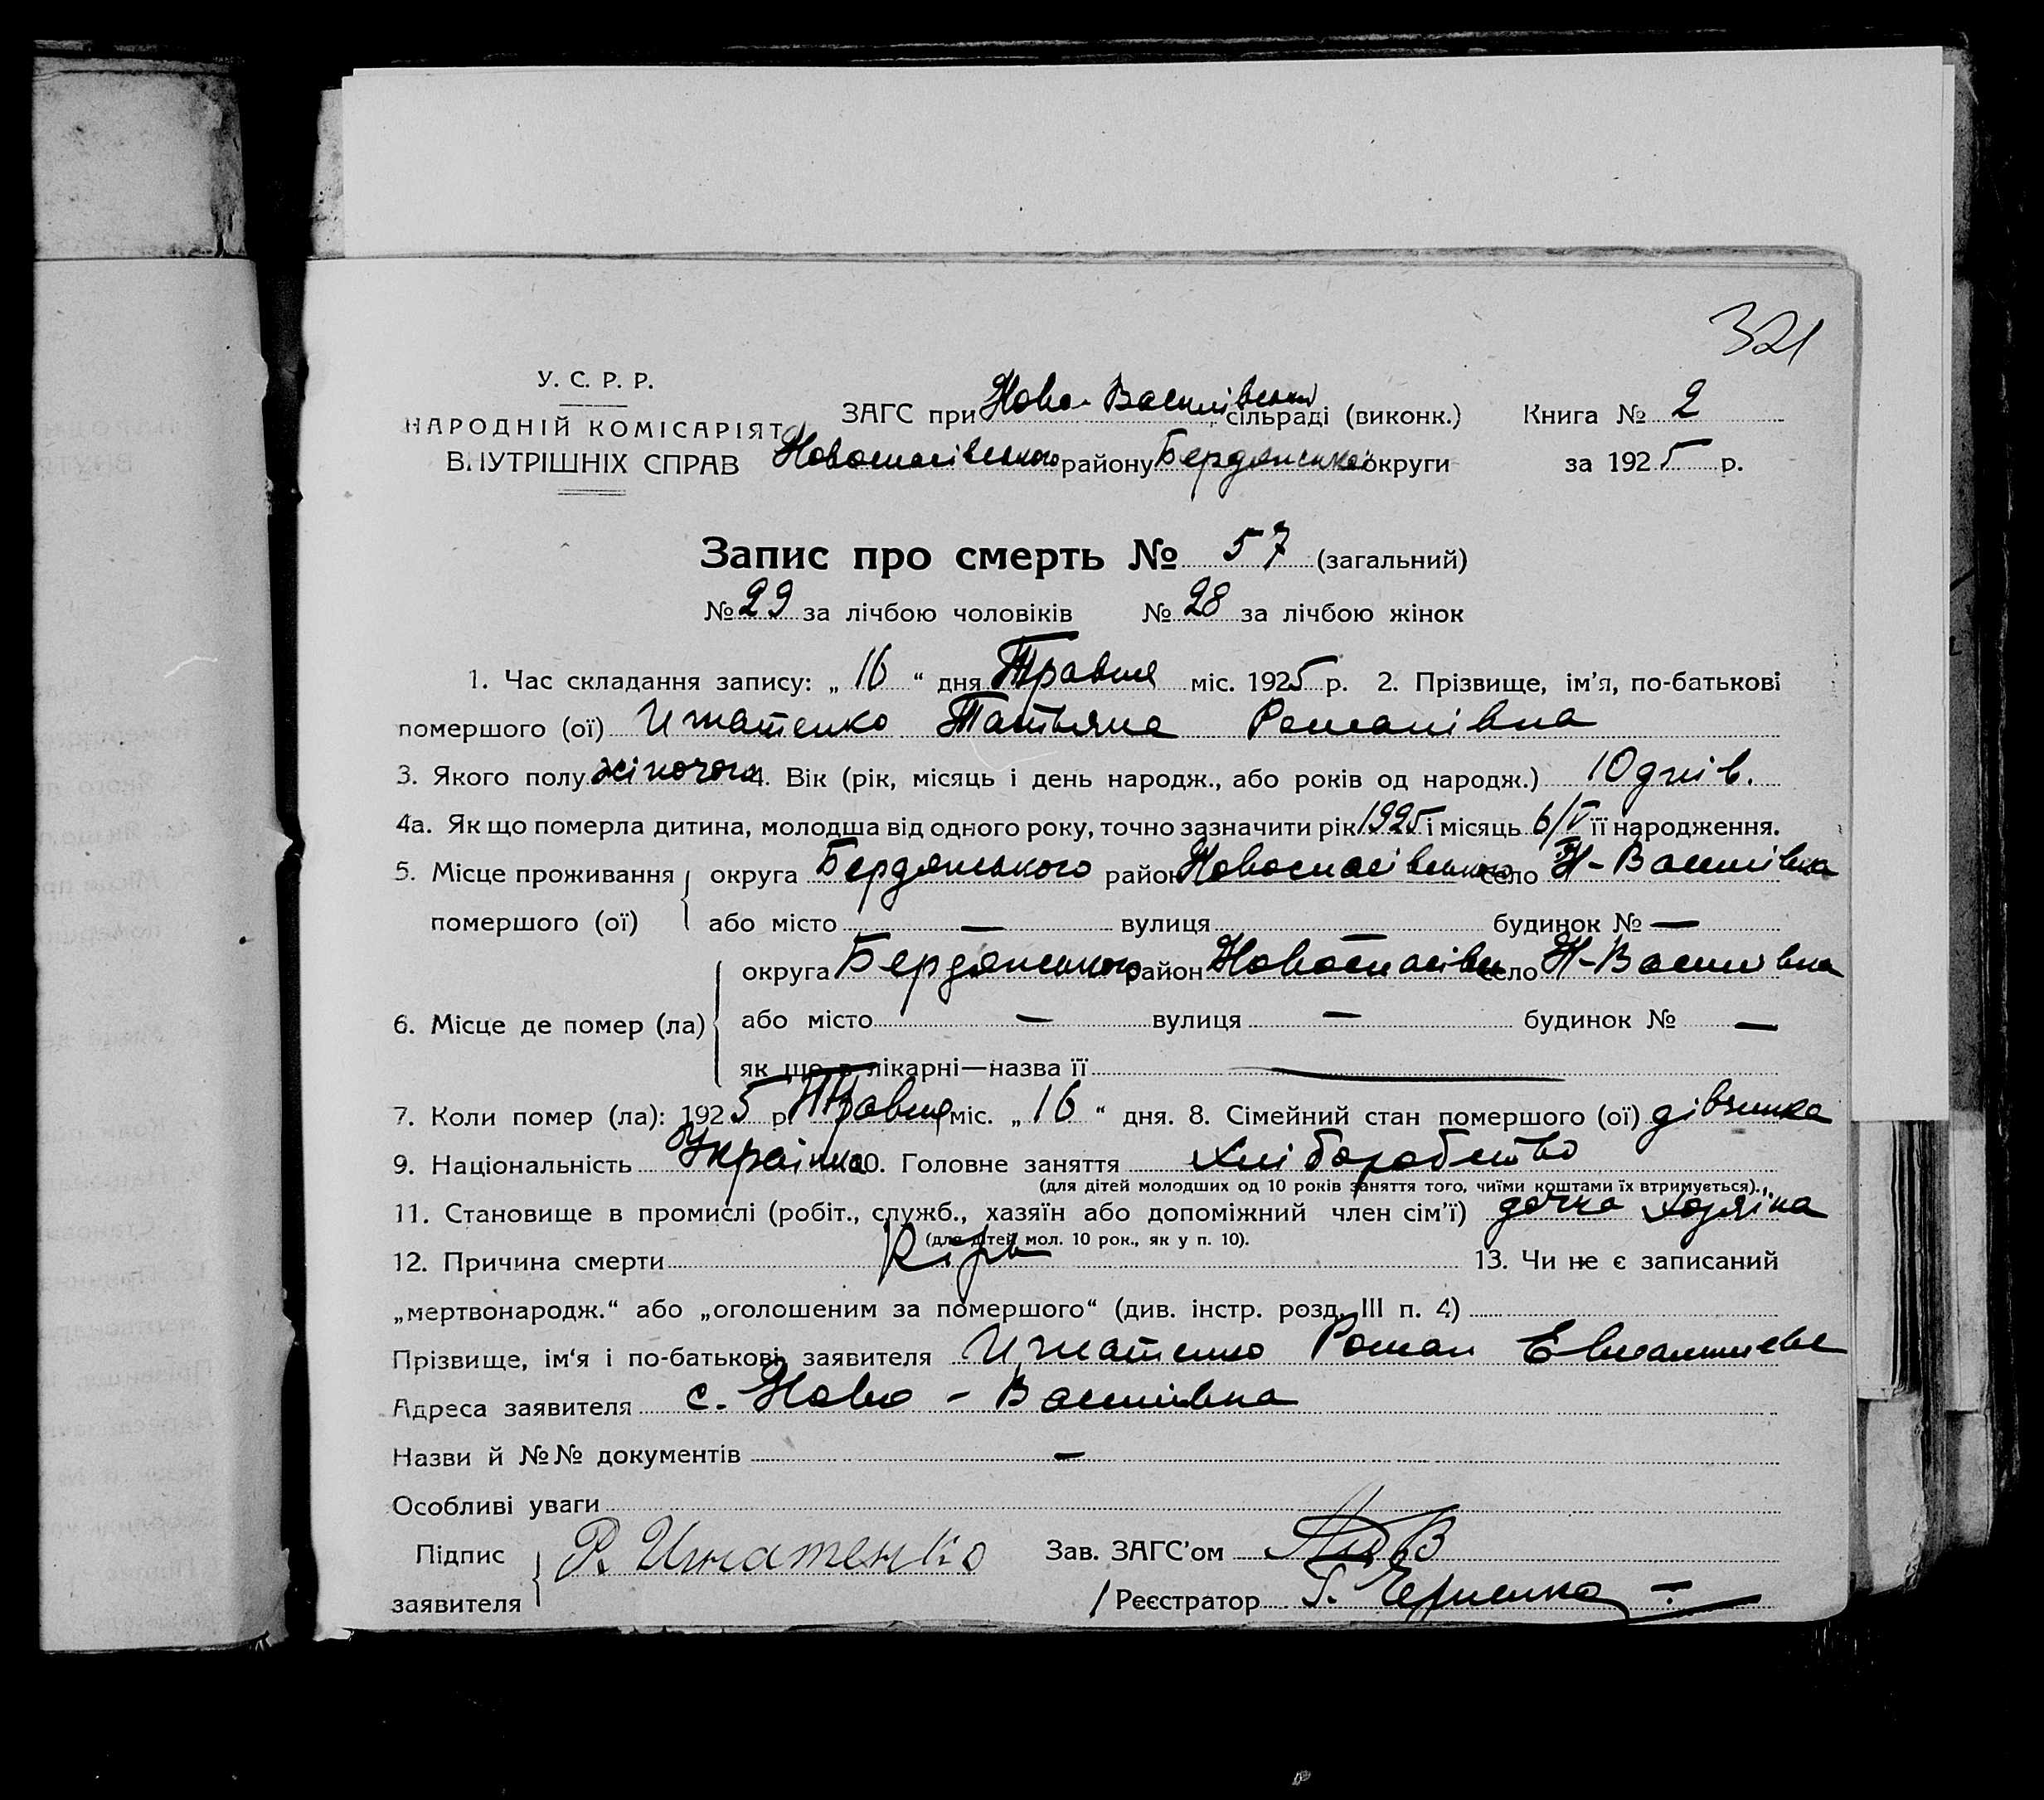 321
У. С. Р. Р.
НАРОДНІЙ КОМІСАРІЯТ
ВНУТРІШНІХ СПРАВ
ЗАГС при Ново-Василівськи сільраді (виконк.) Книга № 2
Новоспасівського району Бердянської округи за 1925 р.
Запис про смерть № 57 (загальний)
№ 29 за лічбою чоловіків № 28 за лічбою жінок
1. Час складання запису: „16“ дня Травня міс. 1925 р. 2. Прізвище, ім’я, по-батькові
помершого (ої) Игнатенко Татьяна Романівна
3. Якого полу жіночого 4. Вік (рік, місяць і день народж., або років од народж.) 10 днів.
4а. Як що померла дитина, молодша від одного року, точно зазначити рік 1925 і місяць 6/V її народження.
5. Місце проживання округа Бердянського район Новоспасівського село Н-Василівка
помершого (ої) або місто — вулиця будинок № —
округа Бердянського район Новоспасівськ село Н-Василівка
6. Місце де помер (ла) або місто — вулиця — будинок № —
як що в лікарні—назва її —
7. Коли помер (ла): 1925 р. Травня міс. „16“ дня. 8. Сімейний стан помершого (ої) дівчинка
9. Національність Українка 10. Головне заняття хліборобство
(для дітей молодших од 10 років заняття того, чиїми коштами їх втримується).
11. Становище в промислі (робіт., служб., хазяїн або допоміжний член сім’ї) дочка хазяїна
(для дітей мол. 10 рок., як у п. 10).
12. Причина смерти Кір 13. Чи не є записаний
„мертвонародж.“ або „оголошеним за помершого“ (див. інстр. розд. III п. 4)
Прізвище, ім‘я і по-батькові заявителя Игнатенко Роман
Адреса заявителя с. Ново-Василівка
Назви й №№ документів —
Особливі уваги
Підпис
заявителя Р. Игнатенко
Зав. ЗАГС’ом
Реєстратор Г.